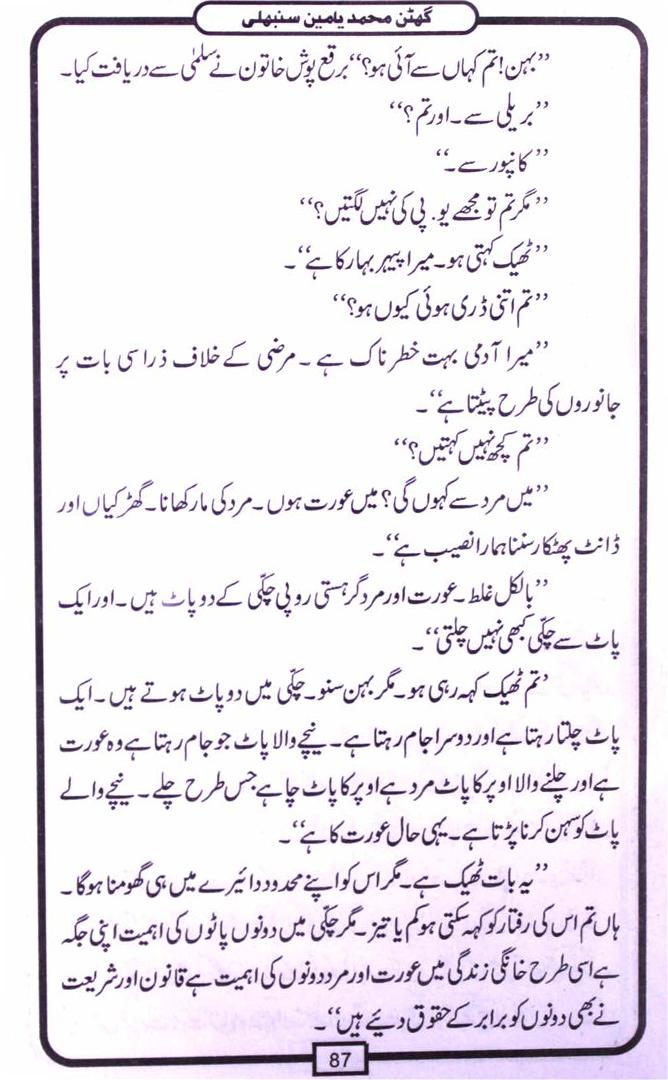 گھٹن محمد یامین سنبھلی
’’بہن! تم کہاں سے آئی ہو؟‘‘ برقع پوش خاتون نے سلمیٰ سے دریافت کیا۔
’’بریلی سے۔ اور تم؟‘‘
’’ کانپور سے۔‘‘
’’مگر تم تو مجھے یو۔ پی کی نہیں لگتیں؟‘‘
’’ٹھیک کہتی ہو۔ میرا پیہر بہار کا ہے‘‘۔
’’تم اتنی ڈری ہوئی کیوں ہو؟‘‘
’’میرا آدمی بہت خطرناک ہے ۔ مرضی کے خلاف ذرا سی بات پر
جانوروں کی طرح پیٹتا ہے‘‘۔
’’تم کچھ نہیں کہتیں؟‘‘
’’میں مرد سے کہوں گی؟ میں عورت ہوں ۔ مرد کی مار کھانا۔ گھڑکیاں اور
ڈانٹ پھٹکار سننا ہمارا نصیب ہے‘‘۔
’’بالکل غلط۔ عورت اور مرد گرہستی روپی چکّی کے دو پاٹ ہیں ۔ اور ایک
پاٹ سے چکّی کبھی نہیں چلتی‘‘۔
’تم ٹھیک کہہ رہی ہو۔ مگر بہن سنو۔ چکّی میں دو پاٹ ہوتے ہیں ۔ ایک
پاٹ چلتا رہتا ہے اور دوسرا جام رہتا ہے۔ نیچے والا پاٹ جو جام رہتا ہے وہ عورت
ہے اور چلنے والا اوپر کا پاٹ مرد ہے اوپر کا پاٹ چاہے جس طرح چلے ۔ نیچے والے
پاٹ کو سہن کرنا پڑتا ہے۔ یہی حال عورت کا ہے‘‘۔
’’یہ بات ٹھیک ہے۔ مگر اس کو اپنے محدود دائیرے میں ہی گھومنا ہوگا ۔
ہاں تم اس کی رفتار کو کہہ سکتی ہو کم یا تیز ۔ مگر چکّی میں دونوں پاٹوں کی اہمیت اپنی جگہ
ہے اسی طرح خانگی زندگی میں عورت اور مرد دونوں کی اہمیت ہے قانون اور شریعت
نے بھی دونوں کو برابر کے حقوق دئیے ہیں‘‘۔
87